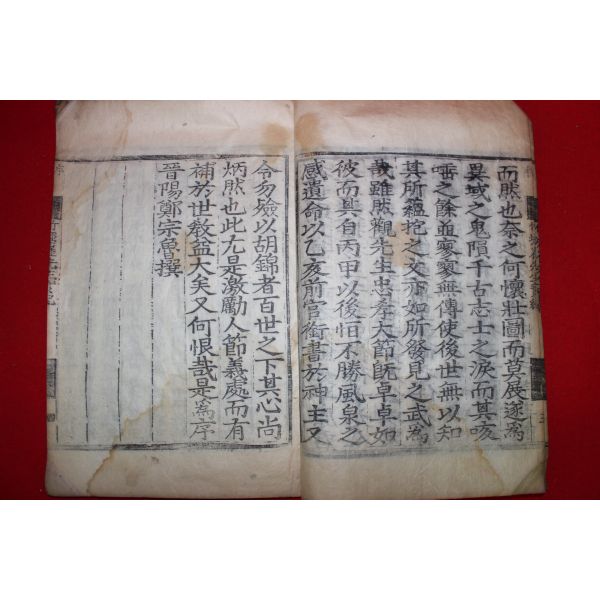 而然也奈之何懷壯圖而莫展遂爲
異域之鬼隕千古志士之淚而其咳
唾之餘並寥寥無傳使後世無以知
其所蘊抱之文亦如所發見之武爲
哉雖然觀先生忠孝大節旣卓卓如
彼而其自丙甲以後恒不勝風泉之
感遺命以乙亥前官銜書於神主又
令勿斂以胡錦者百世之下其心尙
炳然也此尤是激勵人節義處而有
補於世敎益大矣又何恨哉是爲序
晉陽鄭宗魯撰